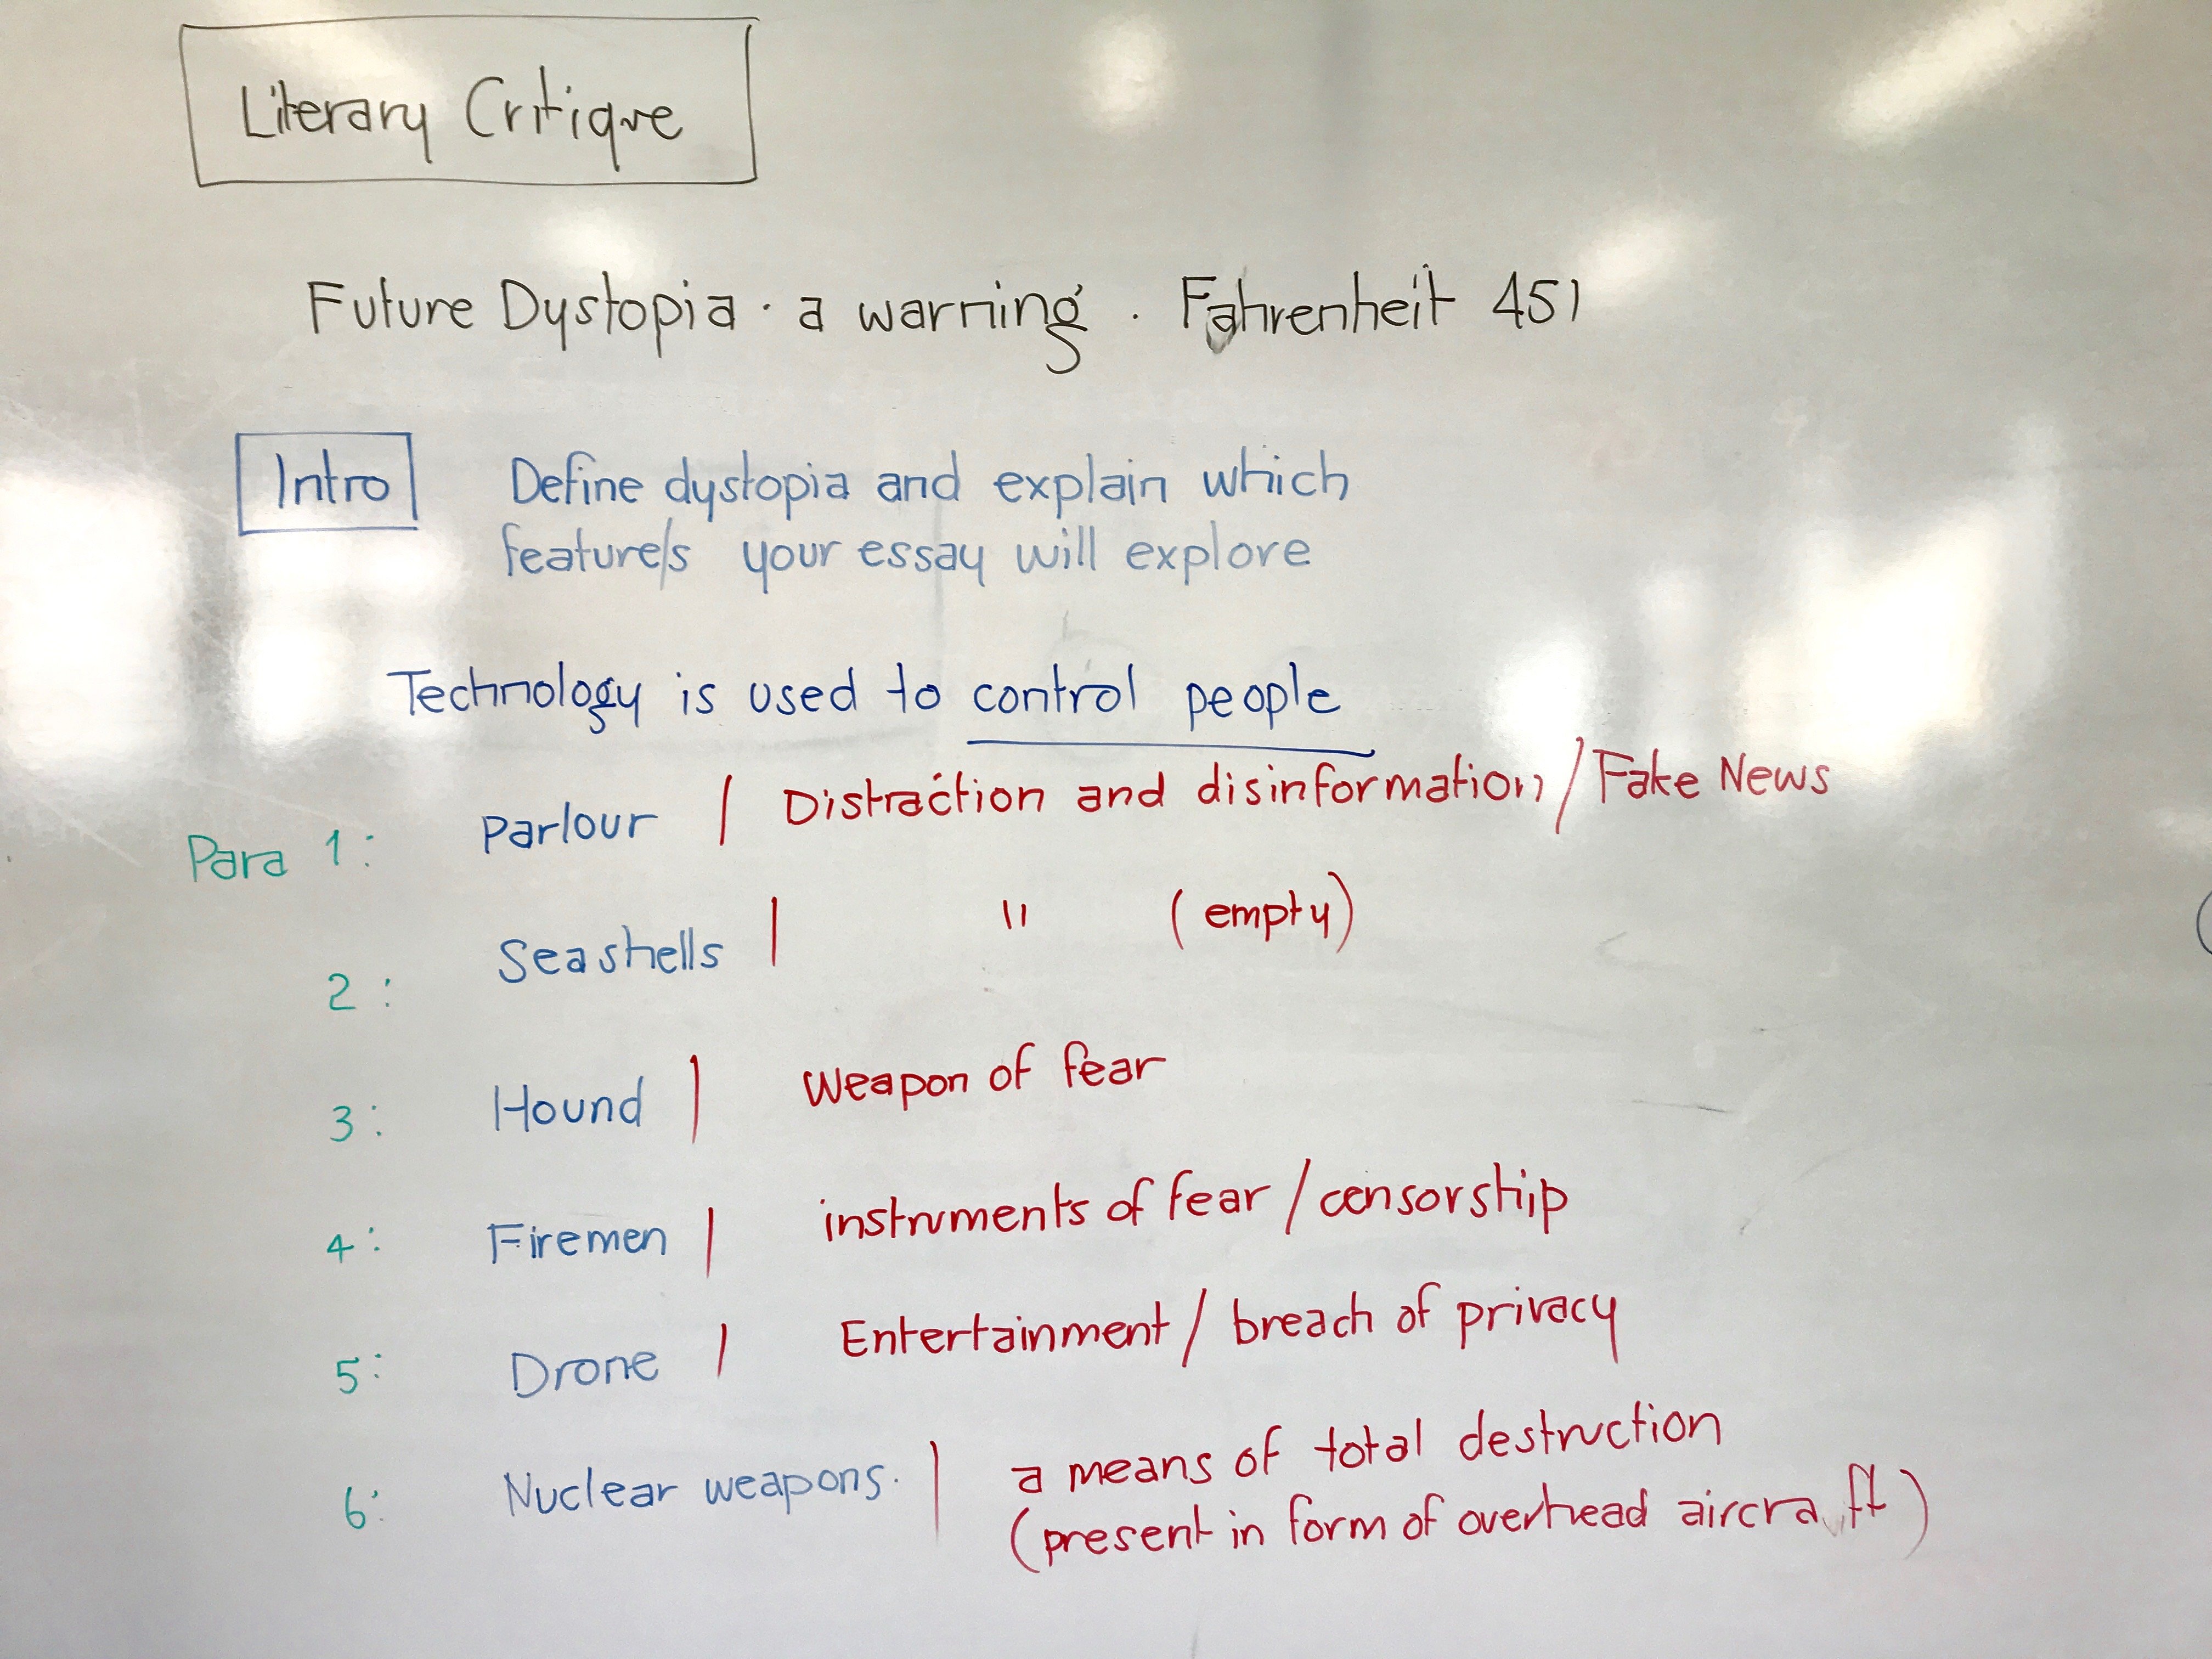 Literary Critique
Future Dystopia · a warning · Fahrenheit 451
Intro Define dystopia and explain which
feature/s your essay will explore
Technology is used to control people
Para 1: Parlour | Distraction and disinformation / Fake News
2: Seashells | " (empty)
3: Hound | Weapon of fear
4: Firemen | instruments of fear / censorship
5: Drone | Entertainment / breach of privacy
6: Nuclear weapons. | a means of total destruction
(present in form of overhead aircraft)